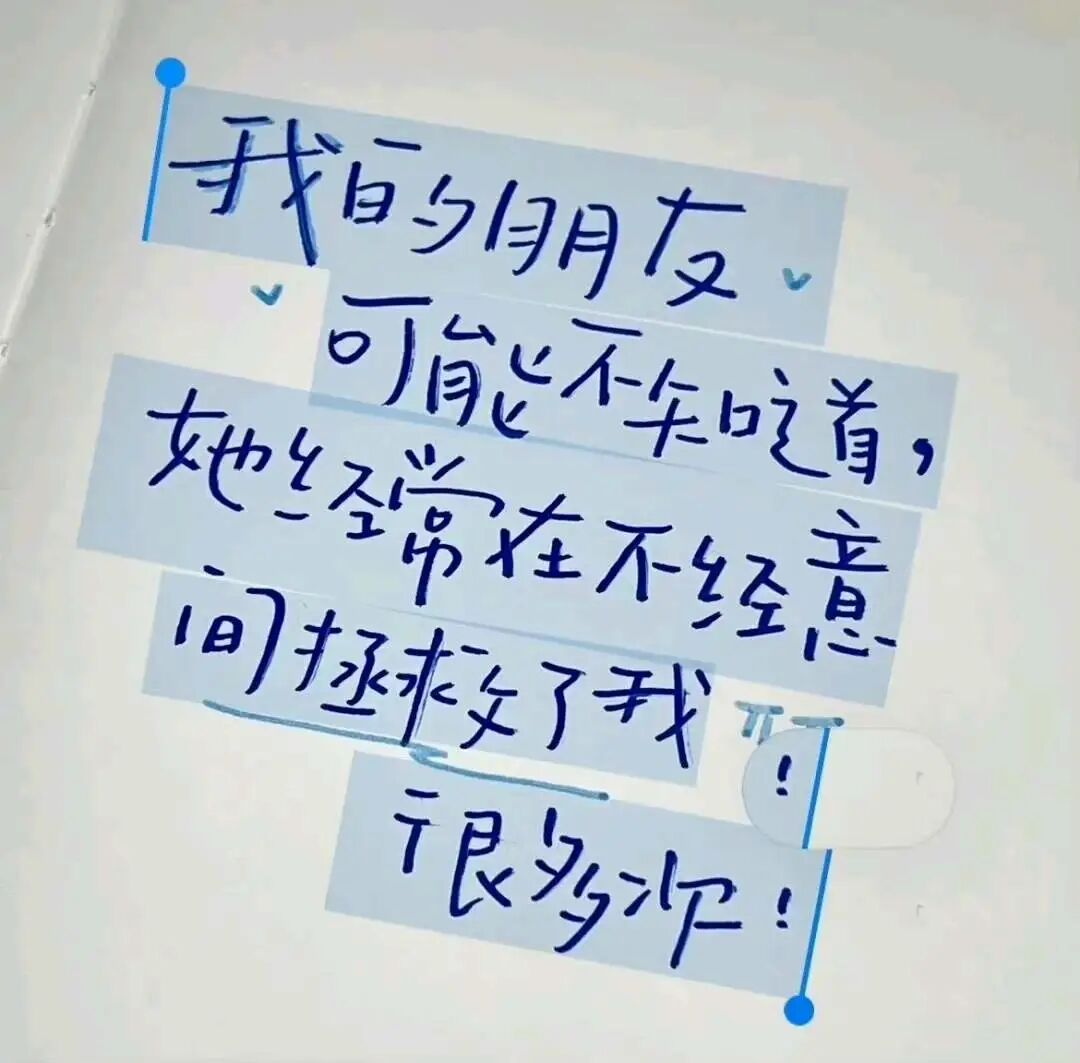 我的朋友
可能不知道,
她经常在不经意
间拯救了我
很多次!